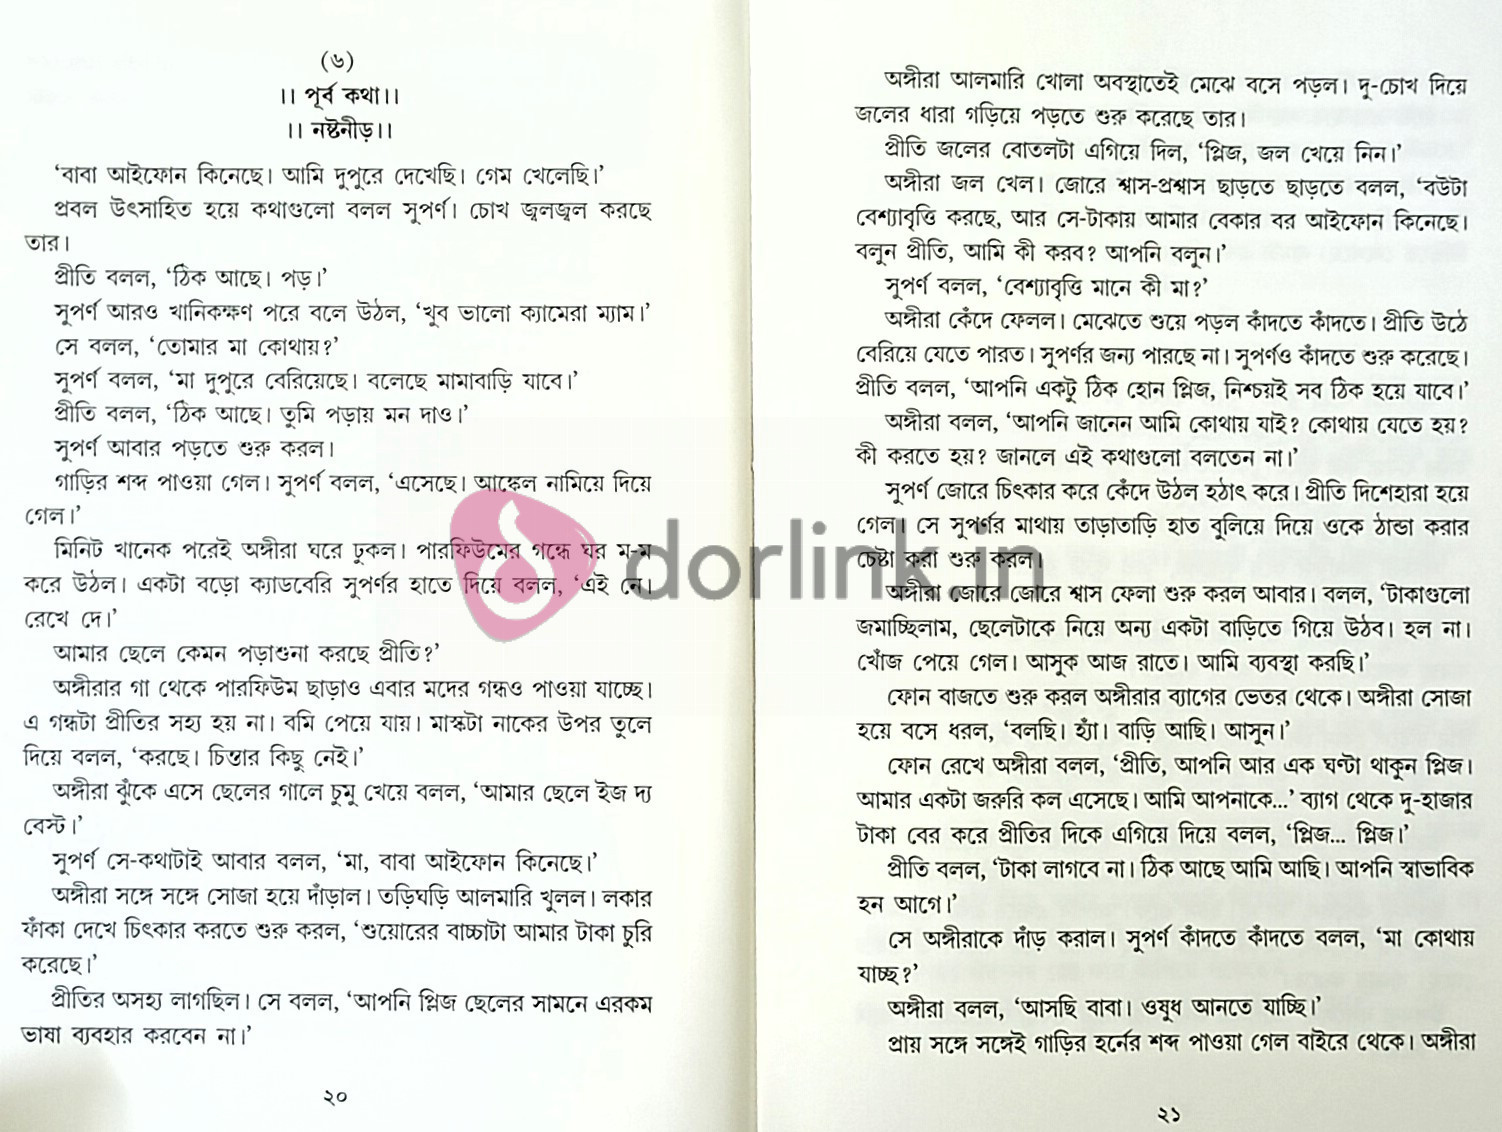 (৬)
।। পূর্ব কথা।।
।। নষ্টনীড়।।
‘বাবা আইফোন কিনেছে। আমি দুপুরে দেখেছি। গেম খেলেছি।’
প্রবল উৎসাহিত হয়ে কথাগুলো বলল সুপর্ণ। চোখ জ্বলজ্বল করছে
তার।
প্রীতি বলল, ‘ঠিক আছে। পড়।’
সুপর্ণ আরও খানিকক্ষণ পরে বলে উঠল, ‘খুব ভালো ক্যামেরা ম্যাম।’
সে বলল, ‘তোমার মা কোথায়?’
সুপর্ণ বলল, ‘মা দুপুরে বেরিয়েছে। বলেছে মামাবাড়ি যাবে।’
প্রীতি বলল, ‘ঠিক আছে। তুমি পড়ায় মন দাও।’
সুপর্ণ আবার পড়তে শুরু করল।
গাড়ির শব্দ পাওয়া গেল। সুপর্ণ বলল, ‘এসেছে। আঙ্কেল নামিয়ে দিয়ে
গেল।’
মিনিট খানেক পরেই অঙ্গীরা ঘরে ঢুকল। পারফিউমের গন্ধে ঘর ম-ম
করে উঠল। একটা বড়ো ক্যাডবেরি সুপর্ণর হাতে দিয়ে বলল, ‘এই নে।
রেখে দে।’
আমার ছেলে কেমন পড়াশুনা করছে প্রীতি?’
অঙ্গীরার গা থেকে পারফিউম ছাড়াও এবার মদের গন্ধও পাওয়া যাচ্ছে।
এ গন্ধটা প্রীতির সহ্য হয় না। বমি পেয়ে যায়। মাস্কটা নাকের উপর তুলে
দিয়ে বলল, ‘করছে। চিন্তার কিছু নেই।’
অঙ্গীরা ঝুঁকে এসে ছেলের গালে চুমু খেয়ে বলল, ‘আমার ছেলে ইজ দ্য
বেস্ট।’
সুপর্ণ সে-কথাটাই আবার বলল, ‘মা, বাবা আইফোন কিনেছে।’
অঙ্গীরা সঙ্গে সঙ্গে সোজা হয়ে দাঁড়াল। তড়িঘড়ি আলমারি খুলল। লকার
ফাঁকা দেখে চিৎকার করতে শুরু করল, ‘শুয়োরের বাচ্চাটা আমার টাকা চুরি
করেছে।’
প্রীতির অসহ্য লাগছিল। সে বলল, ‘আপনি প্লিজ ছেলের সামনে এরকম
ভাষা ব্যবহার করবেন না।’
২০
অঙ্গীরা আলমারি খোলা অবস্থাতেই মেঝে বসে পড়ল। দু-চোখ দিয়ে
জলের ধারা গড়িয়ে পড়তে শুরু করেছে তার।
প্রীতি জলের বোতলটা এগিয়ে দিল, ‘প্লিজ, জল খেয়ে নিন।’
অঙ্গীরা জল খেল। জোরে শ্বাস-প্রশ্বাস ছাড়তে ছাড়তে বলল, ‘বউটা
বেশ্যাবৃত্তি করছে, আর সে-টাকায় আমার বেকার বর আইফোন কিনেছে।
বলুন প্রীতি, আমি কী করব? আপনি বলুন।’
সুপর্ণ বলল, ‘বেশ্যাবৃত্তি মানে কী মা?’
অঙ্গীরা কেঁদে ফেলল। মেঝেতে শুয়ে পড়ল কাঁদতে কাঁদতে। প্রীতি উঠে
বেরিয়ে যেতে পারত। সুপর্ণর জন্য পারছে না। সুপর্ণও কাঁদতে শুরু করেছে।
প্রীতি বলল, ‘আপনি একটু ঠিক হোন প্লিজ, নিশ্চয়ই সব ঠিক হয়ে যাবে।’
অঙ্গীরা বলল, ‘আপনি জানেন আমি কোথায় যাই? কোথায় যেতে হয়?
কী করতে হয়? জানলে এই কথাগুলো বলতেন না।’
সুপর্ণ জোরে চিৎকার করে কেঁদে উঠল হঠাৎ করে। প্রীতি দিশেহারা হয়ে
গেল। সে সুপর্ণর মাথায় তাড়াতাড়ি হাত বুলিয়ে দিয়ে ওকে ঠান্ডা করার
চেষ্টা করা শুরু করল।
adorlink.in
অঙ্গীরা জোরে জোরে শ্বাস ফেলা শুরু করল আবার। বলল, ‘টাকাগুলো
জমাচ্ছিলাম, ছেলেটাকে নিয়ে অন্য একটা বাড়িতে গিয়ে উঠব। হল না।
খোঁজ পেয়ে গেল। আসুক আজ রাতে। আমি ব্যবস্থা করছি।’
ফোন বাজতে শুরু করল অঙ্গীরার ব্যাগের ভেতর থেকে। অঙ্গীরা সোজা
হয়ে বসে ধরল, ‘বলছি। হ্যাঁ। বাড়ি আছি। আসুন।’
ফোন রেখে অঙ্গীরা বলল, ‘প্রীতি, আপনি আর এক ঘণ্টা থাকুন প্লিজ।
আমার একটা জরুরি কল এসেছে। আমি আপনাকে...’ ব্যাগ থেকে দু-হাজার
টাকা বের করে প্রীতির দিকে এগিয়ে দিয়ে বলল, ‘প্লিজ... প্লিজ।’
প্রীতি বলল, ‘টাকা লাগবে না। ঠিক আছে আমি আছি। আপনি স্বাভাবিক
হন আগে।’
সে অঙ্গীরাকে দাঁড় করাল। সুপর্ণ কাঁদতে কাঁদতে বলল, ‘মা কোথায়
যাচ্ছ?’
অঙ্গীরা বলল, ‘আসছি বাবা। ওষুধ আনতে যাচ্ছি।’
প্রায় সঙ্গে সঙ্গেই গাড়ির হর্নের শব্দ পাওয়া গেল বাইরে থেকে। অঙ্গীরা
২১